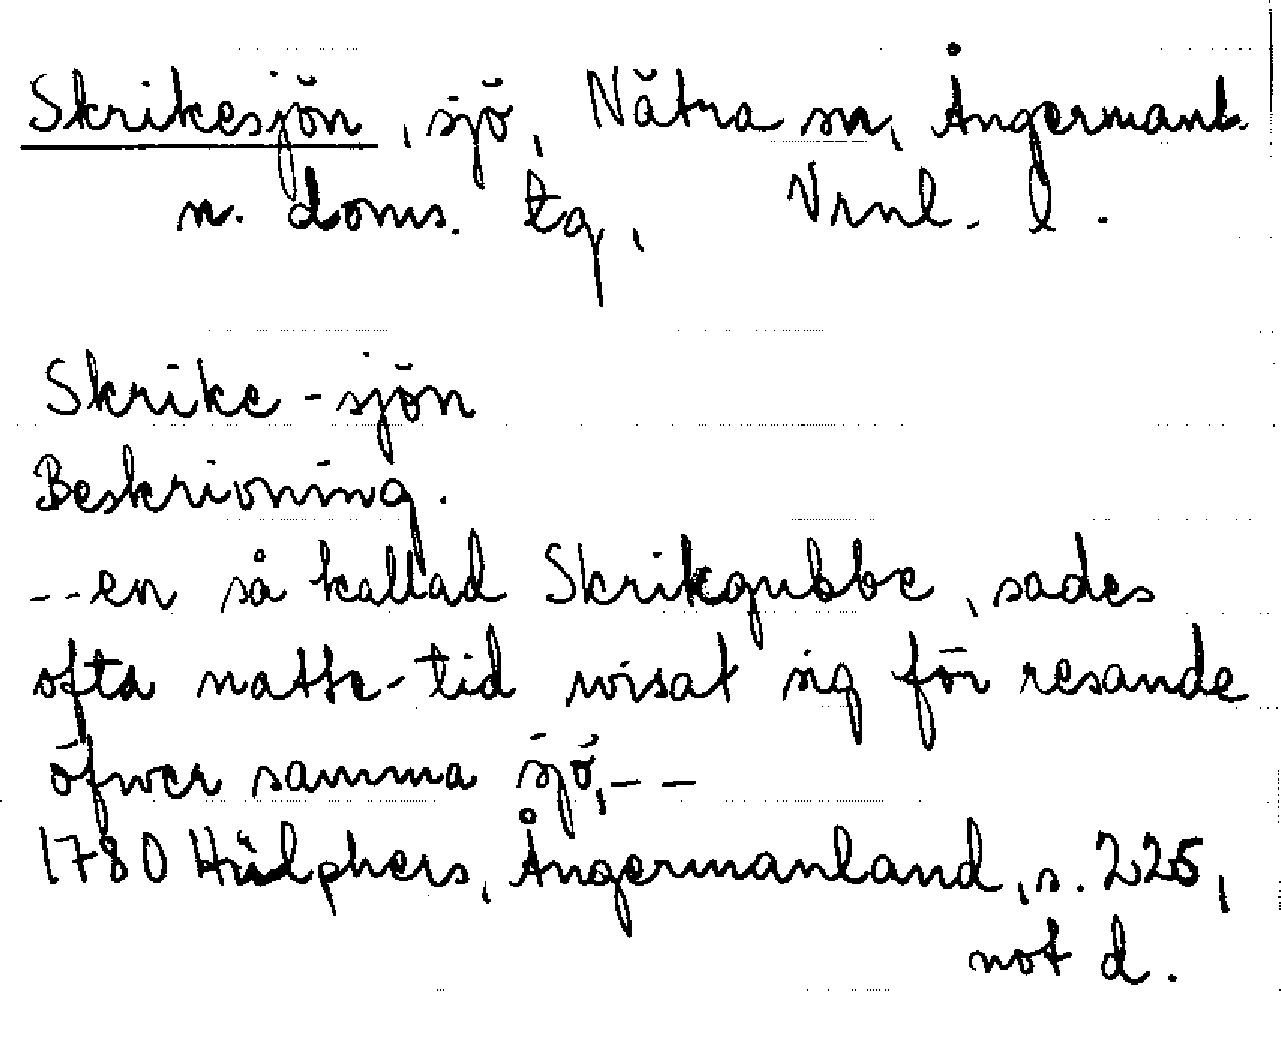 Skrikesjön, sjö, Nätra sn, Ångermanl.
n. doms. tg, Vrnl. l.
Skrike-sjön
Beskrivning.
--en så kallad Skrikgubbe, sades
ofta natte-tid wisat sig för resande
öfwer samma sjö,--
1780 Hülphers, Ångermanland, s. 225,
not d.